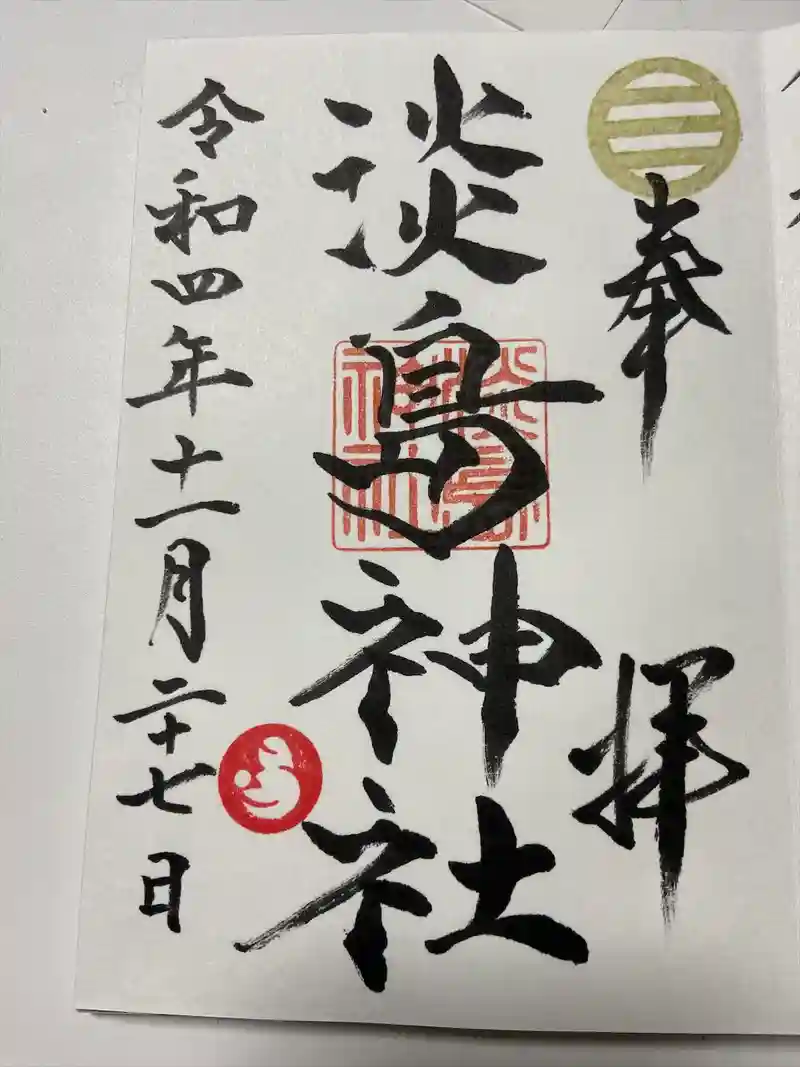 奉拝
淡島神社
令和四年十一月二十七日
淡島神社